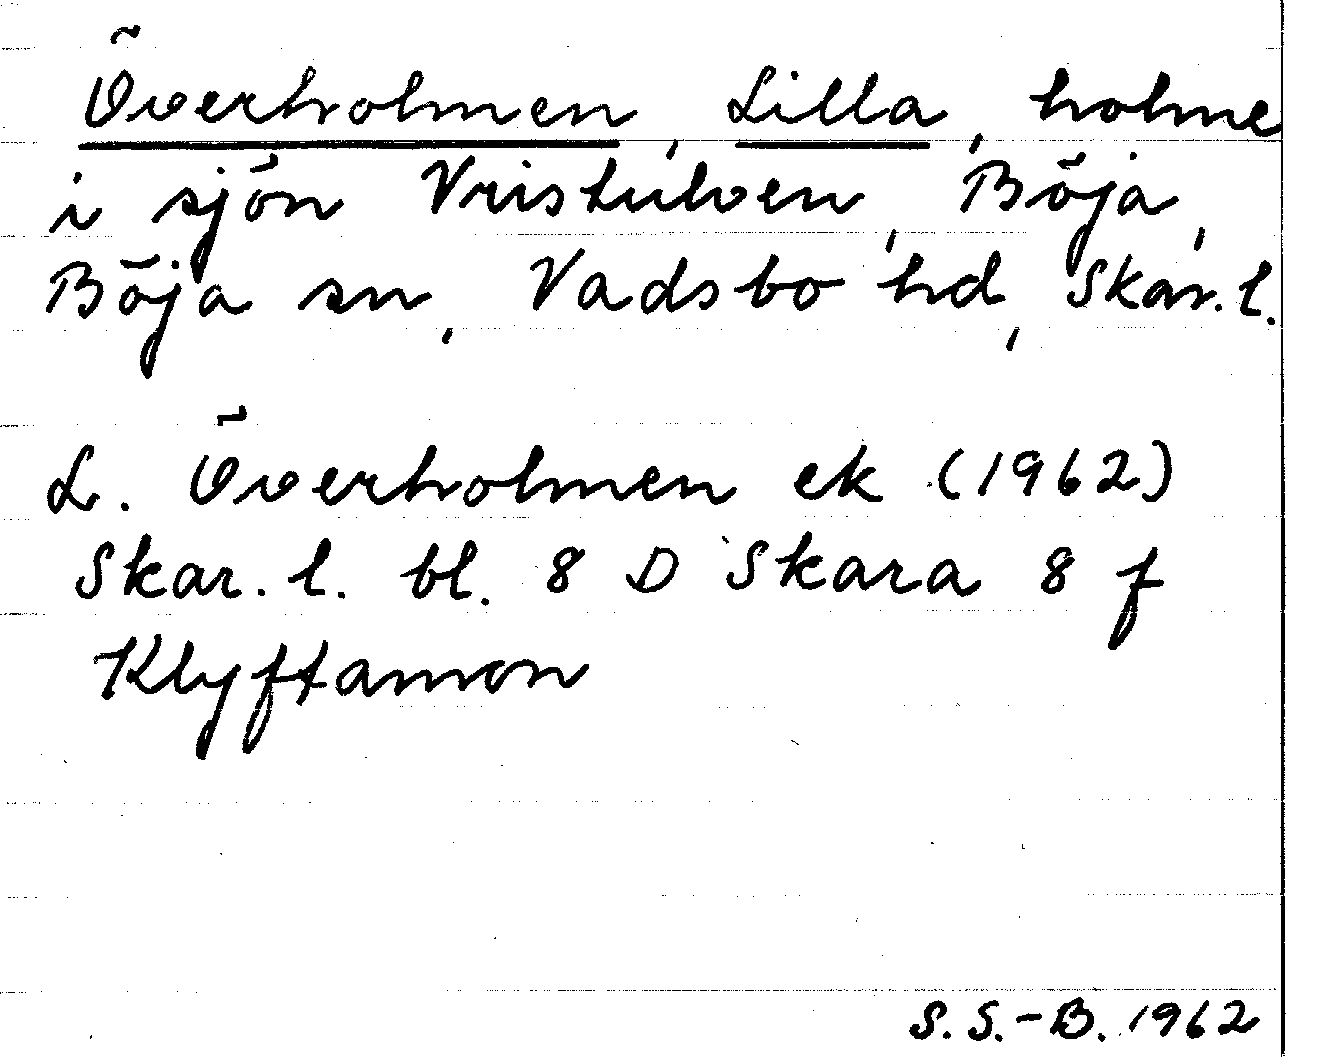 Överholmen, Lilla, holme
i sjön Vristulven, Böja,
Böja sn, Vadsbo hd, Skar. l.
L. Överholmen ek (1962)
Skar. l. bl. 8 D Skara 8 f
Klyftamon
S. S.-B. 1962